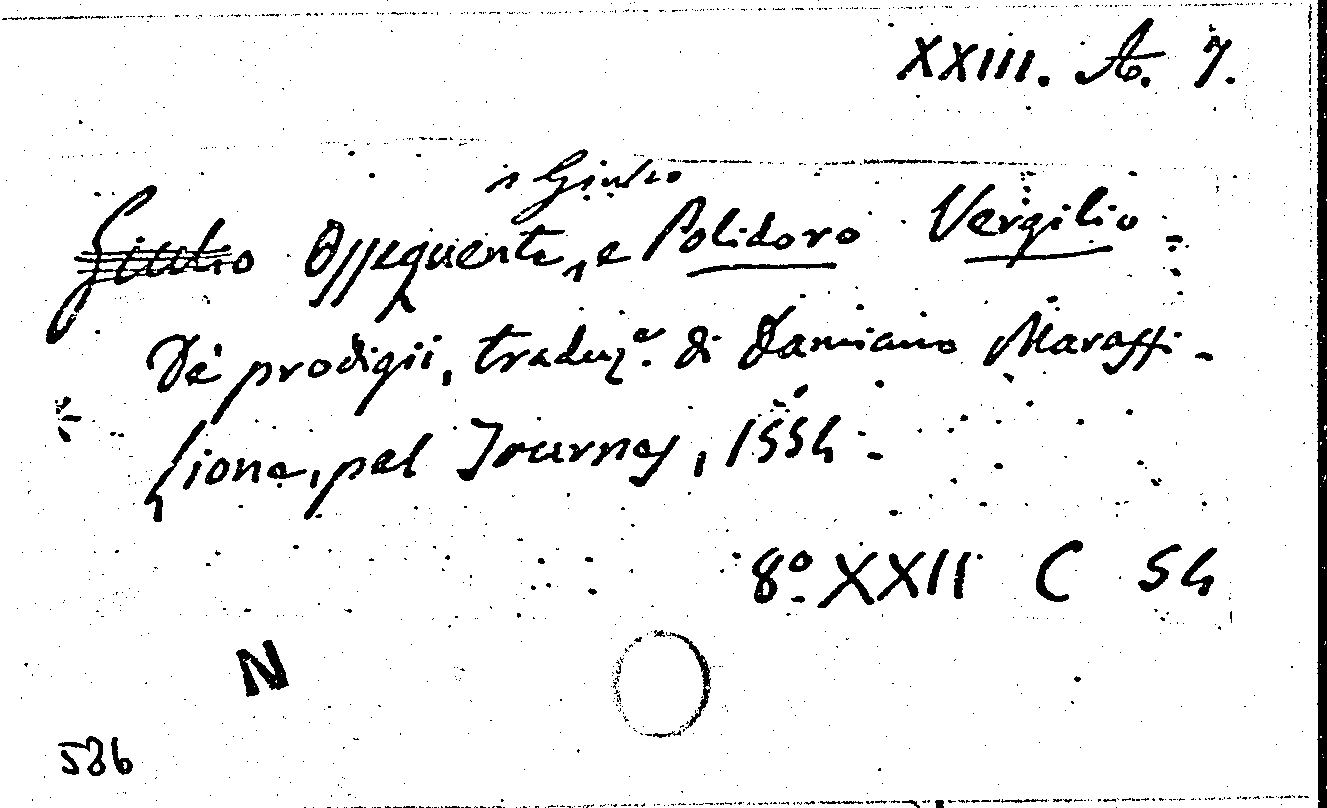 XXIII. A. 7.
Giulio
Giulio Ossequente, e Polidoro Vergilio.
De' prodigii, traduz.e di Damiano Maraffi.
Lione, pel Tournes, 1554.
8º XXII C 54
N
586